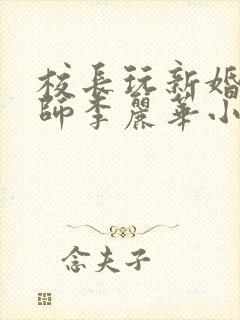 校長玩新婚
師李麗華小
念夫子